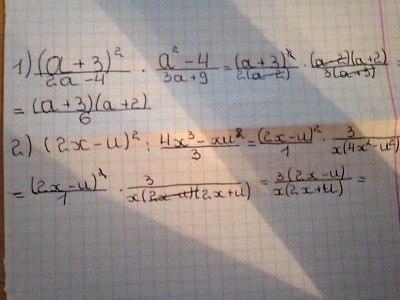 1) (a + 3)² / 2a - 4 · a² - 4 / 3a + 9 = (a + 3)² / 2(a - 2) · (a - 2)(a + 2) / 3(a + 3) =
= (a + 3)(a + 2) / 6
2) (2x - u)² : 4x³ - xu² / 3 = (2x - u)² / 1 · 3 / x(4x² - u²)
= (2x - u)² / 1 · 3 / x(2x - u)(2x + u) = 3(2x - u) / x(2x + u) =